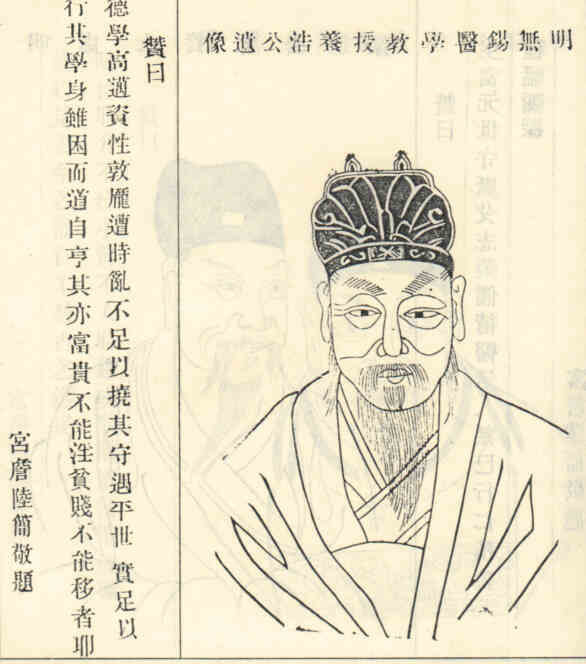 明無錫醫學教授養浩公遺像
贊曰
德學高邁資性敦龐遭時亂不足以撓其守遇平世實足以
行其學身雖困而道自亨其亦富貴不能淫貧賤不能移者耶
宮詹陸簡敬題